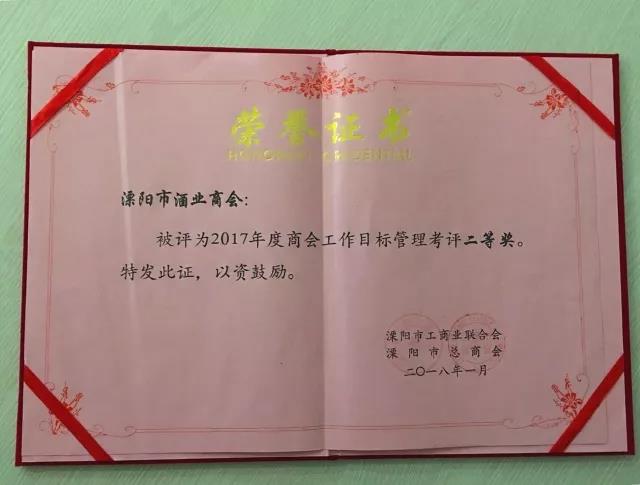 荣誉证书
HONORARY CREDENTIAL
溧阳市酒业商会：
被评为2017年度商会工作目标管理考评二等奖。
特发此证，以资鼓励。
溧阳市工商业联合会
溧阳市总商会
二〇一八年一月